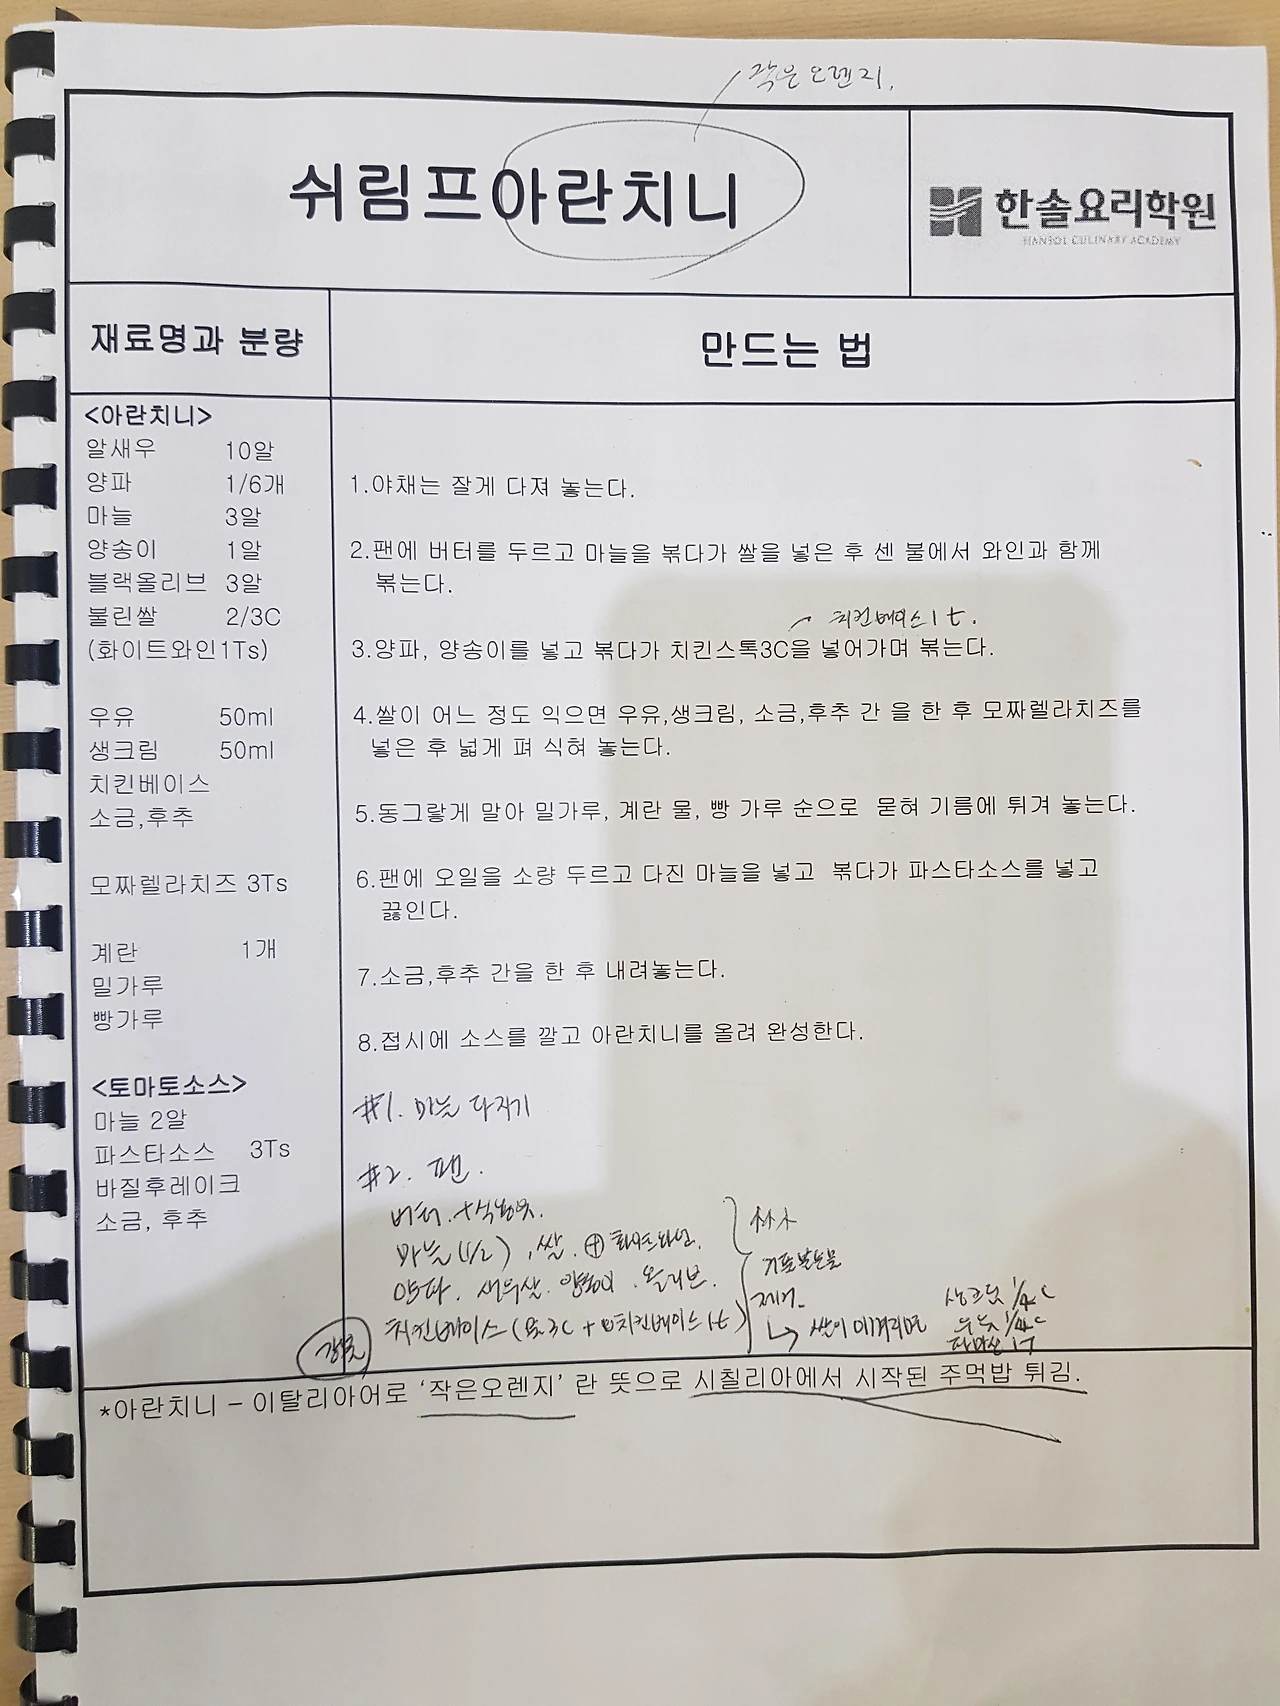 작은오렌지.
쉬림프아란치니
한솔요리학원
HANSOL CULINARY ACADEMY
재료명과 분량
만드는 법
<아란치니>
알새우 10알
양파 1/6개
마늘 3알
양송이 1알
블랙올리브 3알
불린쌀 2/3C
(화이트와인1Ts)
우유 50ml
생크림 50ml
치킨베이스
소금,후추
모짜렐라치즈 3Ts
계란 1개
밀가루
빵가루
<토마토소스>
마늘 2알
파스타소스 3Ts
바질후레이크
소금, 후추
1.야채는 잘게 다져 놓는다.
2.팬에 버터를 두르고 마늘을 볶다가 쌀을 넣은 후 센 불에서 와인과 함께
볶는다.
치킨베이스1t.
3.양파, 양송이를 넣고 볶다가 치킨스톡3C을 넣어가며 볶는다.
4.쌀이 어느 정도 익으면 우유,생크림, 소금,후추 간 을 한 후 모짜렐라치즈를
넣은 후 넓게 펴 식혀 놓는다.
5.동그랗게 말아 밀가루, 계란 물, 빵 가루 순으로 묻혀 기름에 튀겨 놓는다.
6.팬에 오일을 소량 두르고 다진 마늘을 넣고 볶다가 파스타소스를 넣고
끓인다.
7.소금,후추 간을 한 후 내려놓는다.
8.접시에 소스를 깔고 아란치니를 올려 완성한다.
#1. 마늘 다지기
#2. 팬.
버터.+식용유.
마늘(1/2), 쌀. ⊕화이트와인.
양파. 새우살. 양송이. 올리브.
치킨베이스(물3C + 치킨베이스1t)
제거.
쌀이
생크림 1/4C
우유 1/4C
파마산 1T
*아란치니 – 이탈리아어로 '작은오렌지' 란 뜻으로 시칠리아에서 시작된 주먹밥 튀김.